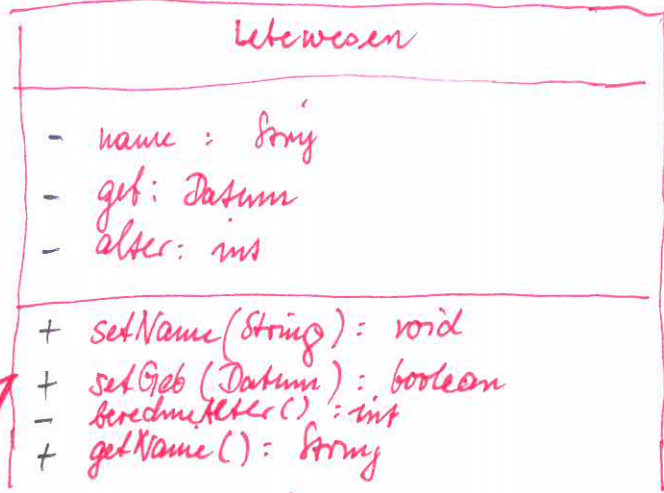 Lebewesen
- name : String
- geb: Datum
- alter: int
+ setName(String): void
+ setGeb (Datum): boolean
- berechneAlter() : int
+ getName(): String